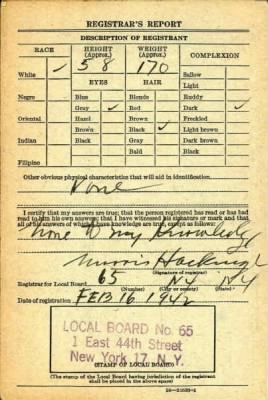 REGISTRAR'S REPORT
DESCRIPTION OF REGISTRANT
RACE HEIGHT (Approx.) WEIGHT (Approx.) COMPLEXION
White ✓ 5 8 170 Sallow
EYES HAIR Light
Negro Blue Blonde Ruddy
Gray ✓ Red Dark ✓
Oriental Hazel Brown Freckled
Brown Black ✓ Light brown
Indian Black Gray Dark brown
Bald Black
Filipino
Other obvious physical characteristics that will aid in identification
None
I certify that my answers are true; that the person registered has read or has had
read to him his own answers; that I have witnessed his signature or mark and that
all of his answers of which I have knowledge are true, except as follows:
None to my Knowledge
Morris
(Signature of registrar)
Registrar for Local Board 65 N.Y. N.Y.
(Number) (City or county) (State)
Date of registration FEB 16 1942
LOCAL BOARD No. 65
1 East 44th Street
New York 17, N. Y.
(STAMP OF LOCAL BOARD)
(The stamp of the Local Board having jurisdiction of the registrant
shall be placed in the above space)